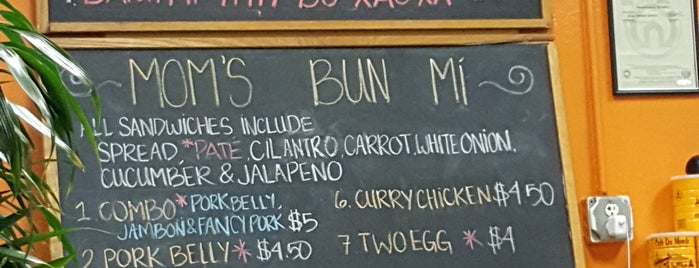 MOM'S BUN Mi
ALL SANDWICHES INCLUDE
SPREAD, *PATE, CILANTRO, CARROT, WHITE ONION,
CUCUMBER & JALAPENO
1 COMBO *PORK BELLY,
JAMBON & FANCY PORK $5
2 PORK BELLY * $4.50
6. CURRY CHICKEN $4.50
7 TWO EGG * $4